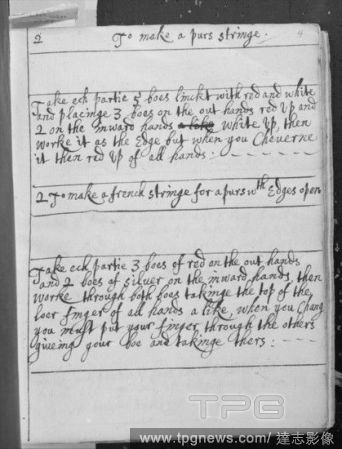 2 To make a purs stringe. 4
Take ech partie 5 boes linket with red and white
and placinge 3 boes on the out hands red up and
2 on the inward hands a like white up, then
worke it as the Edge but when you Cheverne
it then red up of all hands:
2 To make a french stringe for a purs wth Edges open
Take ech partie 3 boes of red on the out hands
and 2 boes of silver on the inward hands then
worke through both boes takinge the top of the
foor finger of all hands a like, when you chang
you must put your finger through the others
giveing your boe and takinge thers:
TPG
www.tpgnews.com/ 達志影像